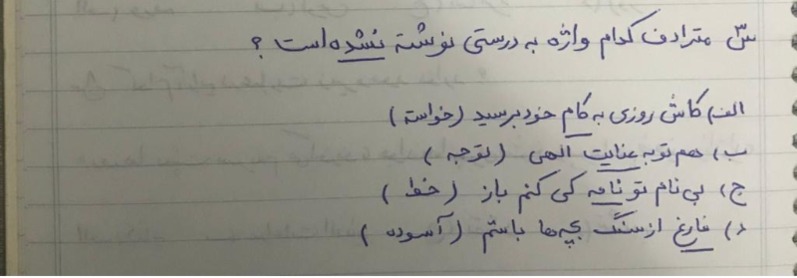 س مترادف کدام واژه به درستی نوشته نشده است؟
الف) کاش روزی به کام خود برسید (خواسته)
ب) هم تو به عنایت الهی (توجه)
ج) بی نام تو نامه کی کنم باز (خط)
د) فارغ از سنگ بچه ها باشم (آسوده)